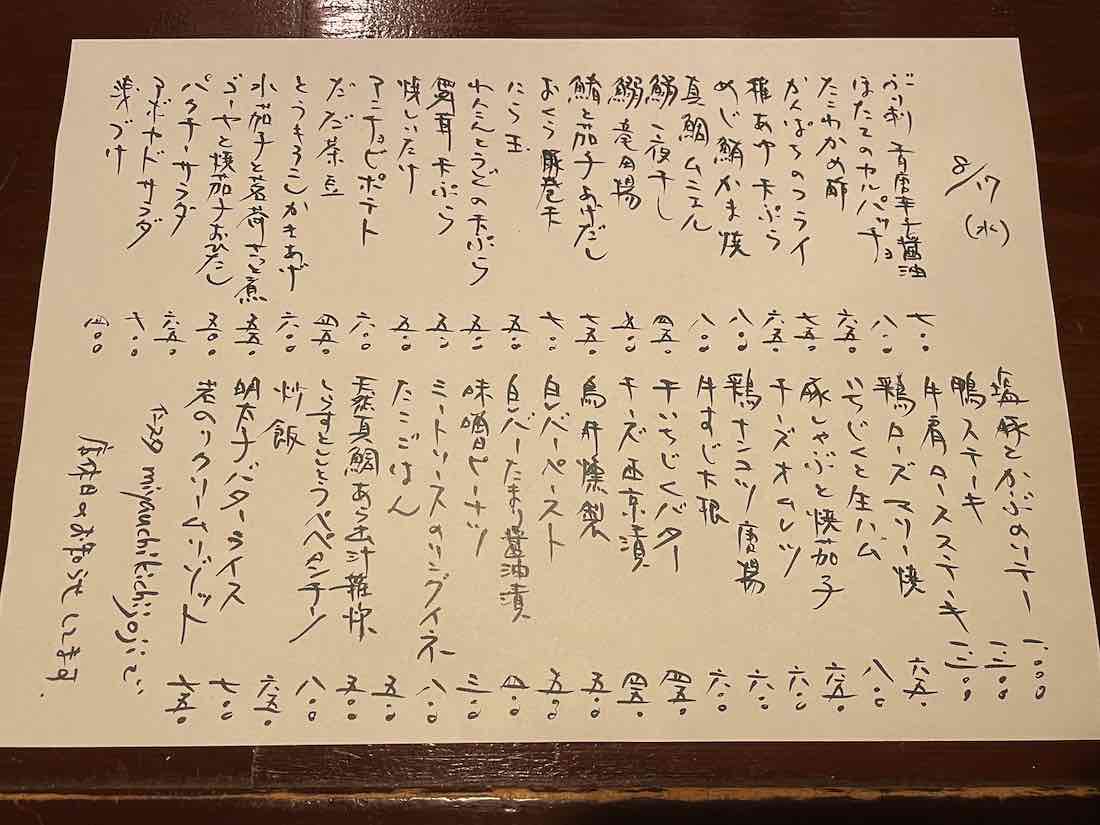 8/17
(水)
ぶり刺 青唐辛子醤油 七〇〇
ほたてのカルパッチョ 八〇〇
たこわかめ酢 六五〇
かんぱちのフライ 七五〇
稚あゆ天ぷら 六五〇
めじ鮪かま焼 八〇〇
真鯛ムニエル 八〇〇
一夜干し 四五〇
鰯竜田揚 五〇〇
と茄子あげだし 七五〇
おくら豚巻天 七〇〇
にら玉 五五〇
の天ぷら 五五〇
天ぷら 五五〇
焼しいたけ 五〇〇
アンチョビポテト 六〇〇
だだ茶豆 四五〇
とうもろこしかきあげ 六〇〇
水茄子と茗荷さっと煮 五五〇
ゴーヤと焼茄子おひたし 五〇〇
パクチーサラダ 六五〇
アボカドサラダ 七〇〇
浅づけ 四〇〇
塩豚とかぶのソテー 一〇〇〇
鴨ステーキ 一三〇〇
牛肩ロースステーキ 一三〇〇
鶏ローズマリー焼 六五〇
いちじくと生ハム 八〇〇
豚しゃぶと焼茄子 六五〇
チーズオムレツ 六〇〇
鶏ナンコツ唐揚 六〇〇
牛すじ大根 六〇〇
干いちじくバター 四五〇
チーズ西京漬 四五〇
鳥肝燻製 五五〇
白レバーペースト 五五〇
白レバーたまり醤油漬 四〇〇
味噌ピーナツ 三〇〇
ミートソースのリングイネ 八〇〇
たこごはん 五五〇
天然真鯛あら出汁雑炊 五五〇
しらすとししとうペペロンチーノ 八〇〇
炒飯 六五〇
明太子バターライス 七〇〇
岩のりクリームリゾット 七五〇
インスタ miyauchikichijojiで
店休日のお知らせしてます。